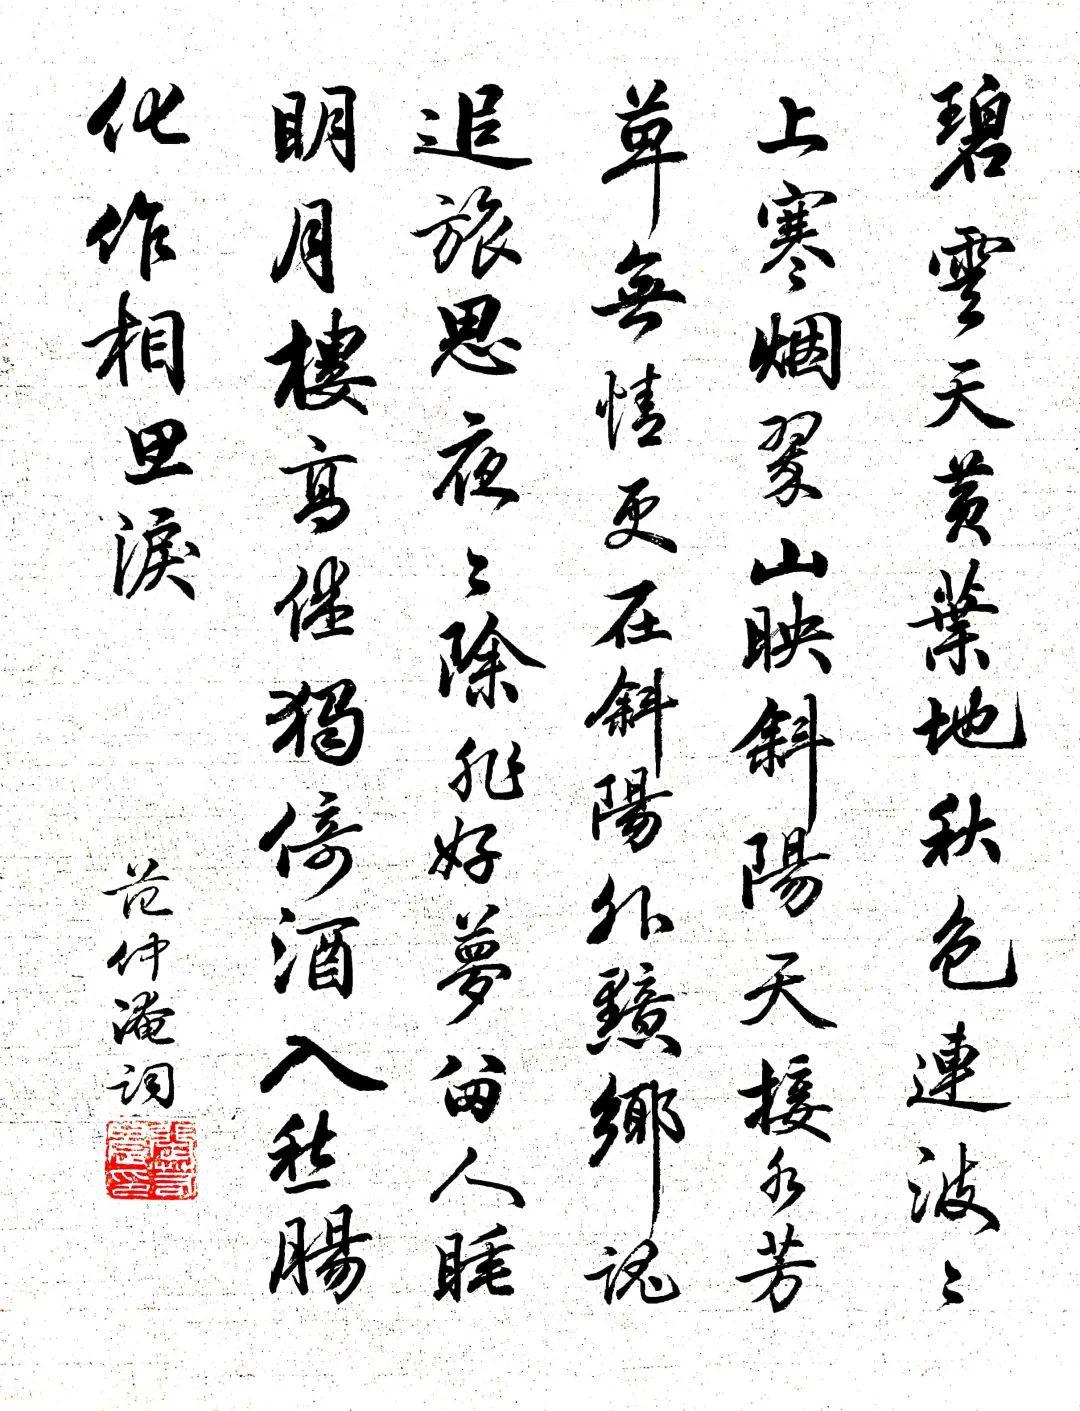 碧雲天黄葉地秋色連波〻
上寒烟翠山映斜陽天接水芳
草無情更在斜陽外黯鄉魂
追旅思夜〻除非好夢留人睡
明月樓高休獨倚酒入愁腸
化作相思淚
范仲淹詞